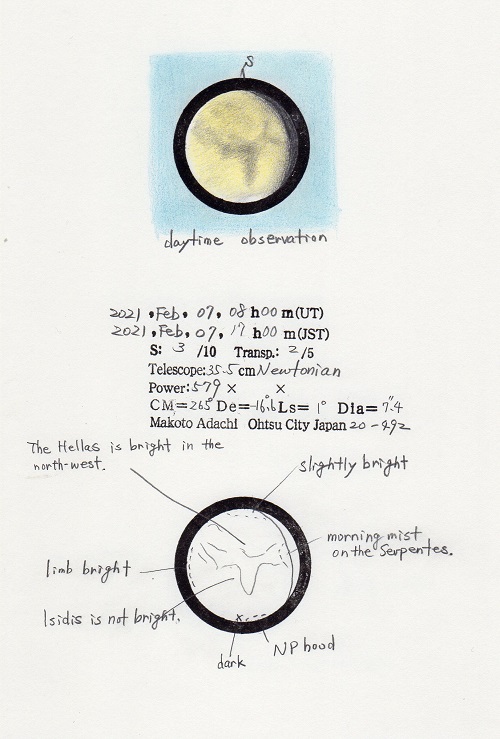 S
daytime observation
2021, Feb, 07, 08 h 00 m (UT)
2021, Feb, 07, 17 h 00 m (JST)
S: 3 /10 Transp.: 2 /5
Telescope: 35.5 cm Newtonian
Power: 579 × ×
CM=265° De=-16.6° Ls= 1° Dia= 7."4
Makoto Adachi Ohtsu City Japan 20-492
The Hellas is bright in the
north-west.
slightly bright
morning mist
on the Serpentes.
limb bright
Isidis is not bright.
NP hood
dark